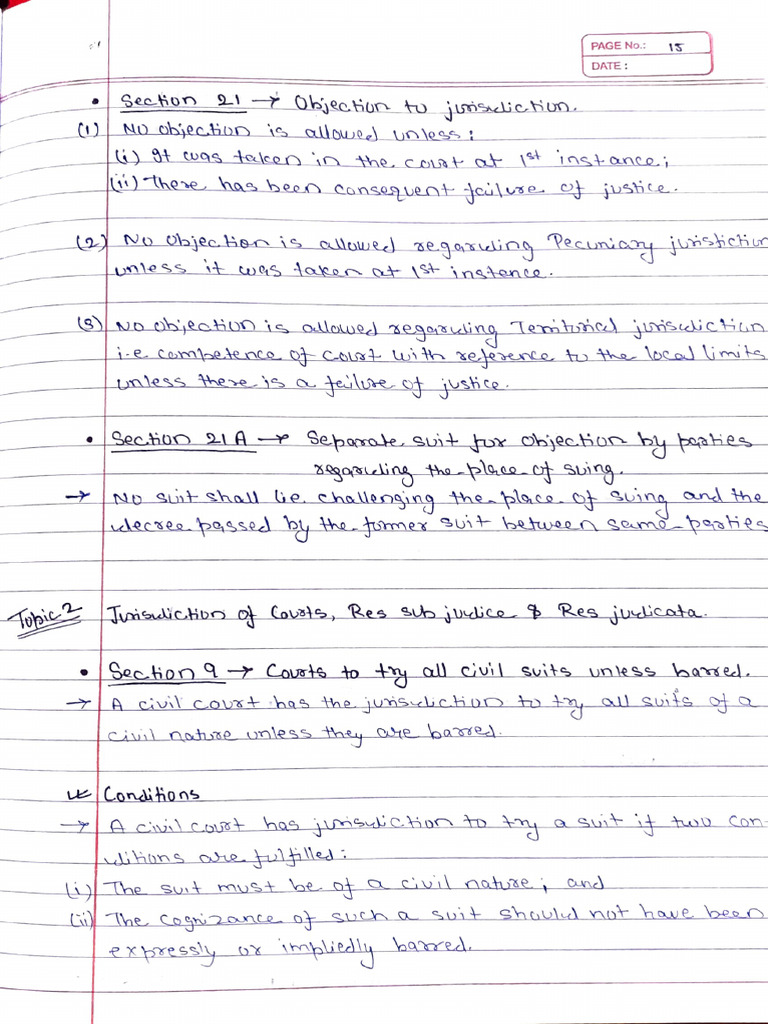 PAGE No.: 15
DATE:
• Section 21 → Objection to jurisdiction.
(1) No objection is allowed unless:
(i) It was taken in the court at 1st instance;
(ii) There has been consequent failure of justice.
(2) No objection is allowed regarding Pecuniary jurisfiction
unless it was taken at 1st instence.
(3) No objection is allowed regarding Territorial jurisdiction
i.e competence of court with reference to the local limits
unless there is a failure of justice.
• Section 21A → Separate suit for objection by parties
regarding the place of suing.
→ No suit shall lie challenging the place of suing and the
decree passed by the former suit between same parties
Topic 2 Jurisdiction of Courts, Res sub judice & Res judicata.
• Section 9 → Courts to try all civil suits unless barred.
→ A civil court has the jurisdiction to try all suits of a
civil nature unless they are barred.
Conditions
→ A civil court has jurisdiction to try a suit if two con-
ditions are fulfilled:
(i) The suit must be of a civil nature; and
(ii) The cognizance of such a suit should not have been
expressly or impliedly barred.